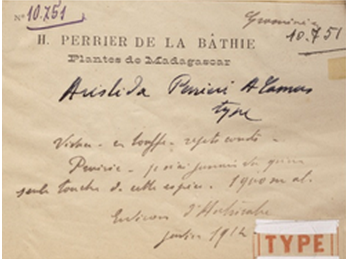 N° 10.751
Graminée
10.751
H. PERRIER DE LA BÂTHIE
Plantes de Madagascar
Aristida Perrieri A. Camus
type
Vivace - en touffe - rejets
Prairie - je n'ai jamais vu qu'une
seule touffe de cette espèce. 1900 m al.
Environs d'Antsirabe
janvier 1912
TYPE